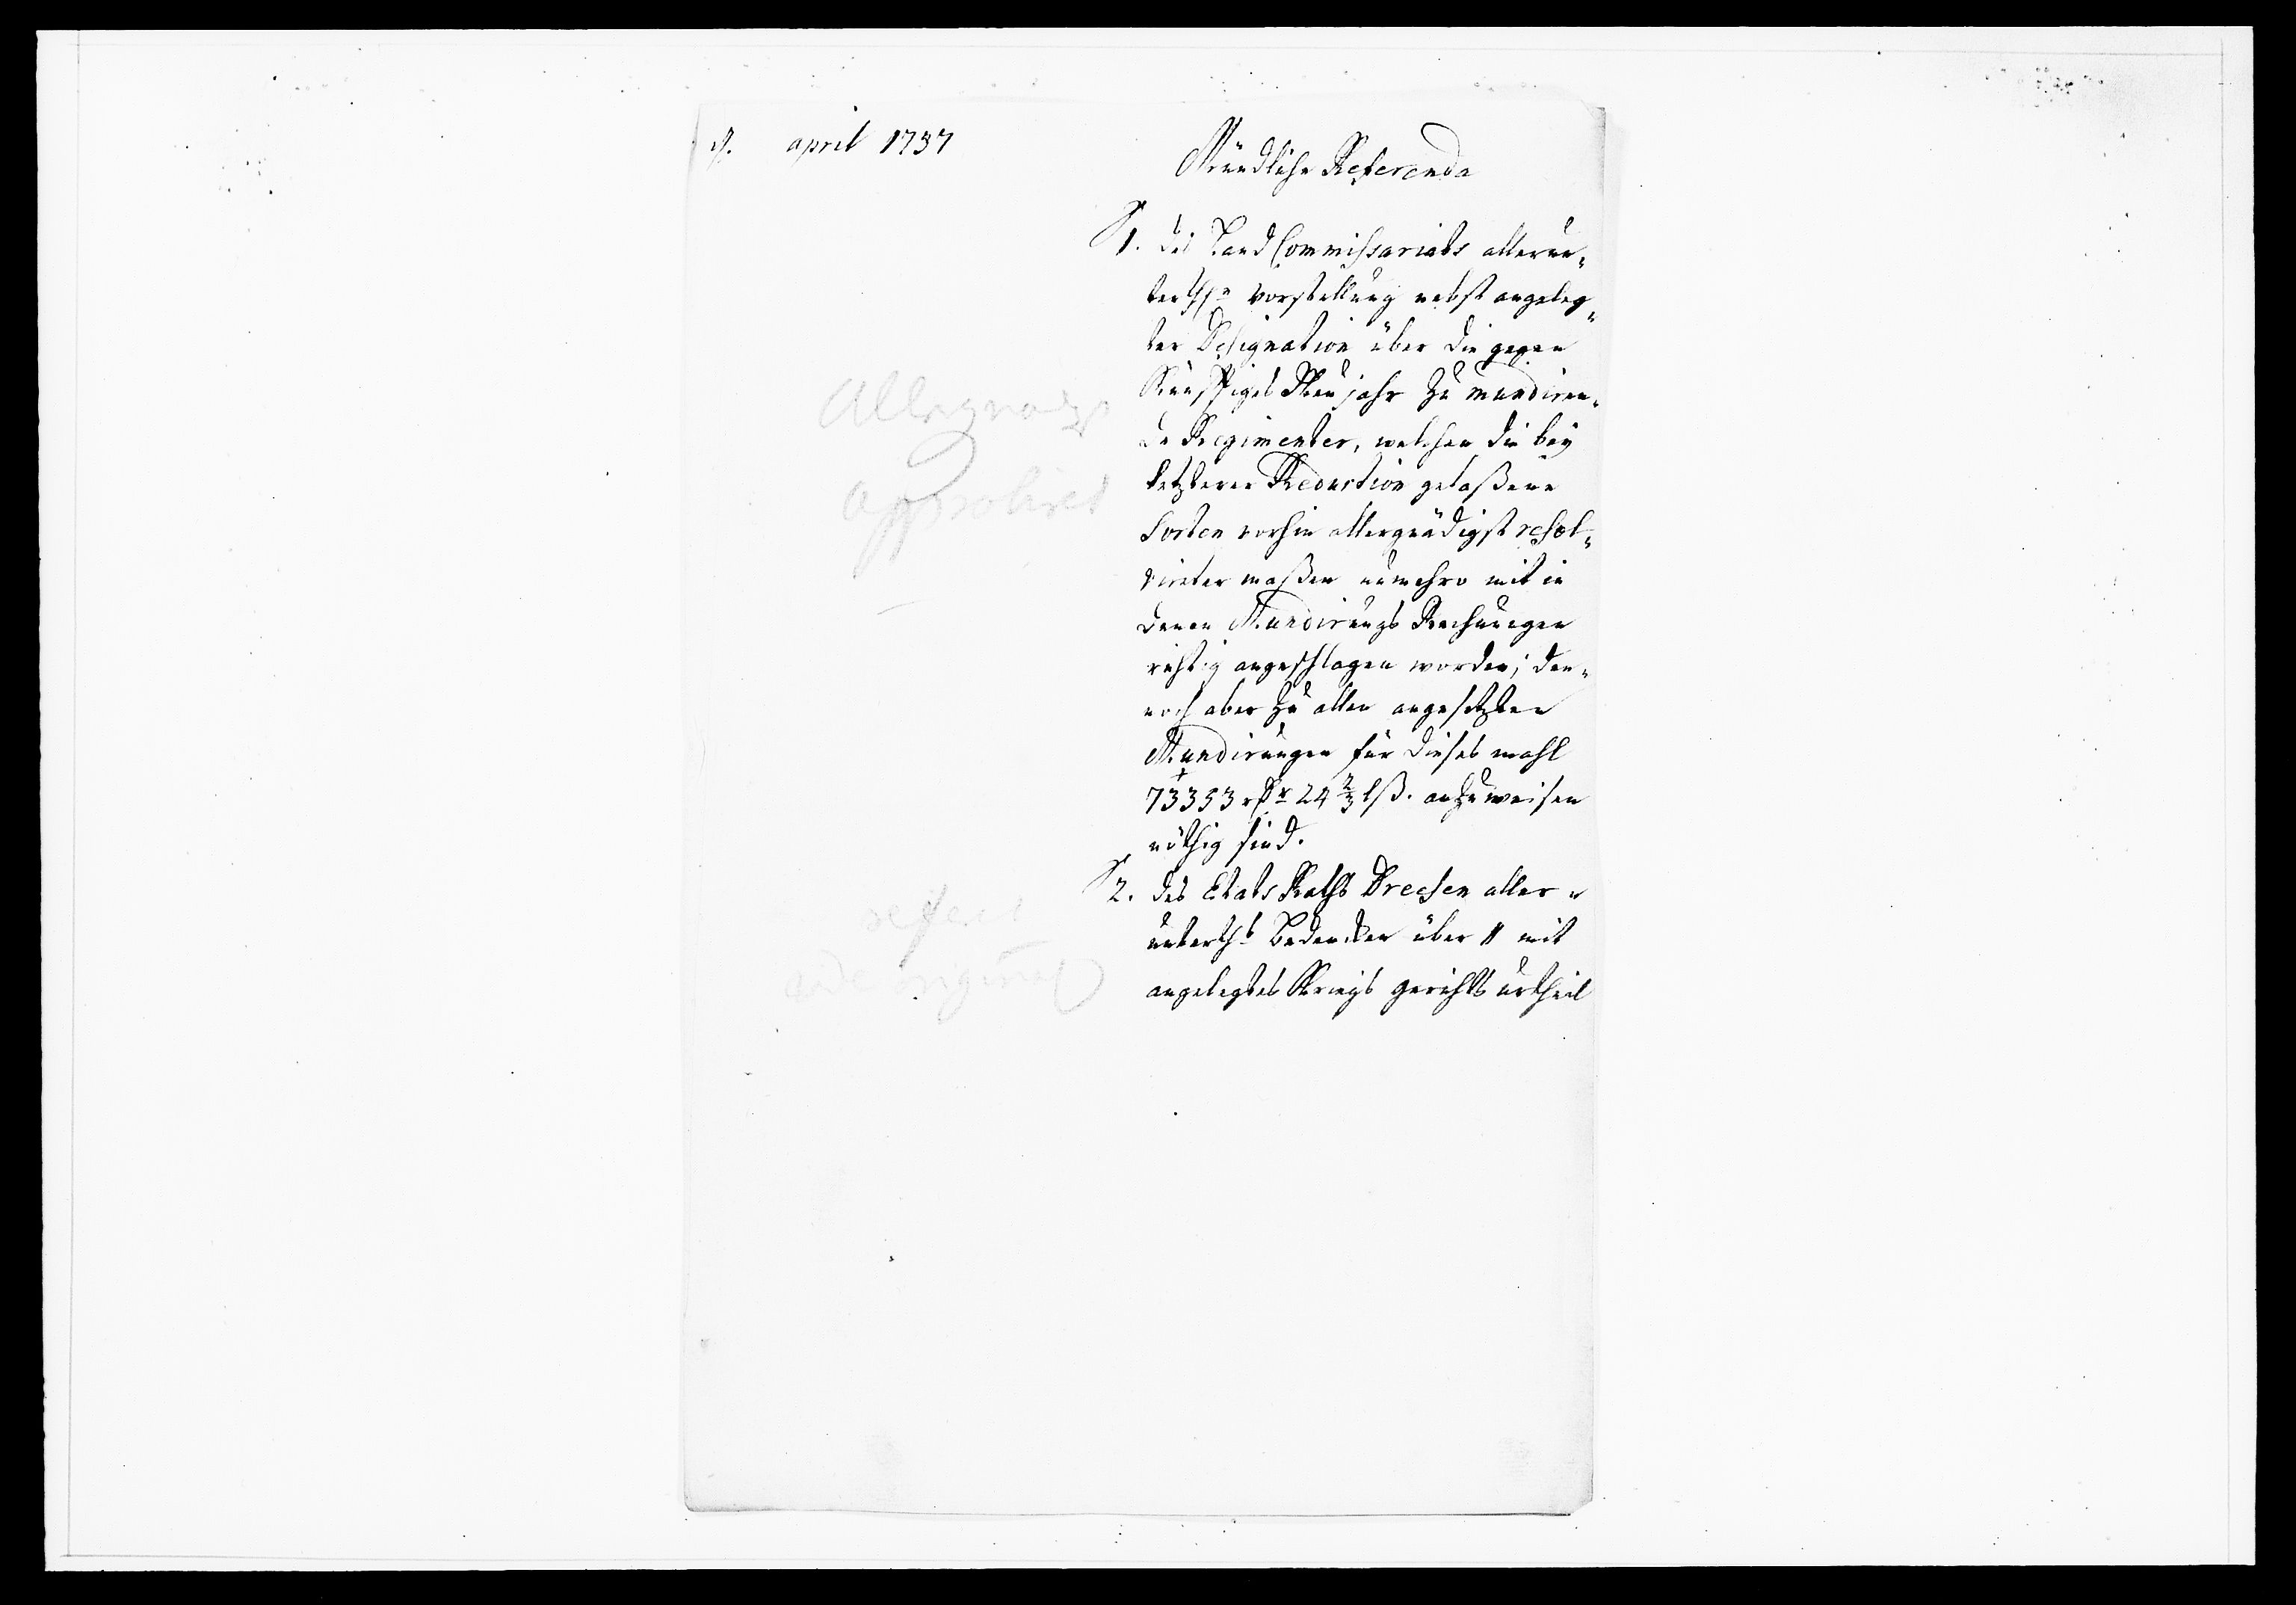 april 1737
Mündliche Referenda
1. des Land Commissariats allerun„
terthste Vorstellung nebst angeleg„
ter Designation über die gegen
Künfftiges Neujahr zu mundiren„
de Regimenter, welchen die bey
letzterer Reduction gelaßene
Sorten vorhin allergnädigst resol„
virter maßen nunmehro mit in
denen Mundirungs Rechnungen
richtig angeschlagen worden; den„
noch aber zu allen angesetzten
Mundirungen für dieses mahl
73353 rdr 24 2/3 lß. anzuweisen
nöthig sind.
2. des Etats Raths Dreesen aller„
unterths Bedencken über // mit
angelegtes Kriegs gerichts urtheil
Allergnädigst
approbiret
refert
ad original